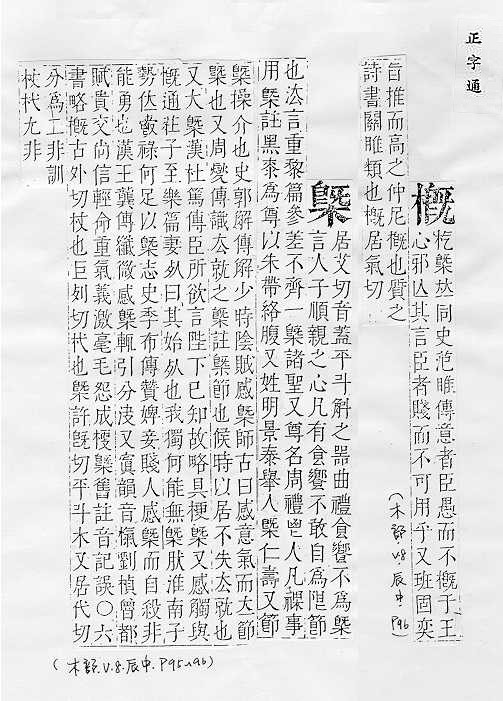 正字通
槪
杚槩𠀤同史范睢傳意者臣愚而不槪于王
心邪亾其言臣者賤而不可用乎又班固奕
旨推而高之仲尼槪也質之
詩書關雎類也槪居氣切
(木部 V.8. 辰中. P96)
槩
居艾切音蓋平斗斛之器曲禮食饗不爲槩
言人子順親之心凡有食饗不敢自爲限節
也法言重黎篇參差不齊一槩諸聖又尊名周禮鬯人凡祼事
用槩註黑桼爲尊以朱帶絡腹又姓明景泰舉人槩仁壽又節
槩操介也史郭解傳解少時陰賊感槩師古曰感意氣而立節
槩也又周燮傳識去就之槩註槩節也候時以居不失去就也
又大槩漢杜篤傳臣所欲言陛下已知故略具梗槩又感觸與
慨通莊子至樂篇妻𣦸曰其始𣦸也我獨何能無槩肰淮南子
勢位𣝔祿何足以槩志史季布傳贊婢妾賤人感槩而自殺非
能勇也漢王龔傳纖微感槩輒引分决又寘韻音槪劉楨魯都
賦貴交尚信輕命重氣義激毫毛怨成梗槩舊註音記誤〇六
書略槪古外切杖也巨刈切杙也槩許旣切平斗木又居代切
分爲二非訓
杖杙尤非
(木部. V.8. 辰中. P95~96)